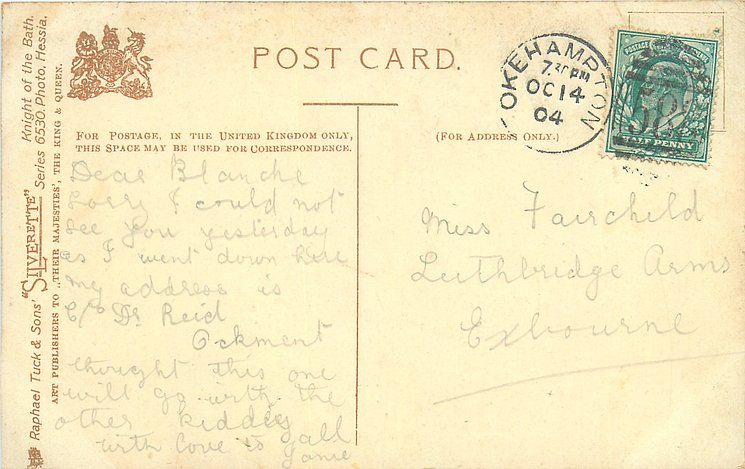 POST CARD.
OKEHAMPTON
7.30PM
OC 14
04
POSTAGE
HALF PENNY
FOR POSTAGE, IN THE UNITED KINGDOM ONLY,
THIS SPACE MAY BE USED FOR CORRESPONDENCE.
(FOR ADDRESS ONLY.)
Dear Blanche
Sorry I could not
see you yesterday
as I went down here
my address is
C/o Dr Reid
Ockment
thought this one
will go with the
other kiddy
with love to all
Miss Fairchild
Luthbridge Arms
Exbourne
Raphael Tuck & Sons' "SILVERETTE" Knight of the Bath.
Series 6530. Photo, Hessia.
ART PUBLISHERS TO „THEIR MAJESTIES', THE KING & QUEEN.